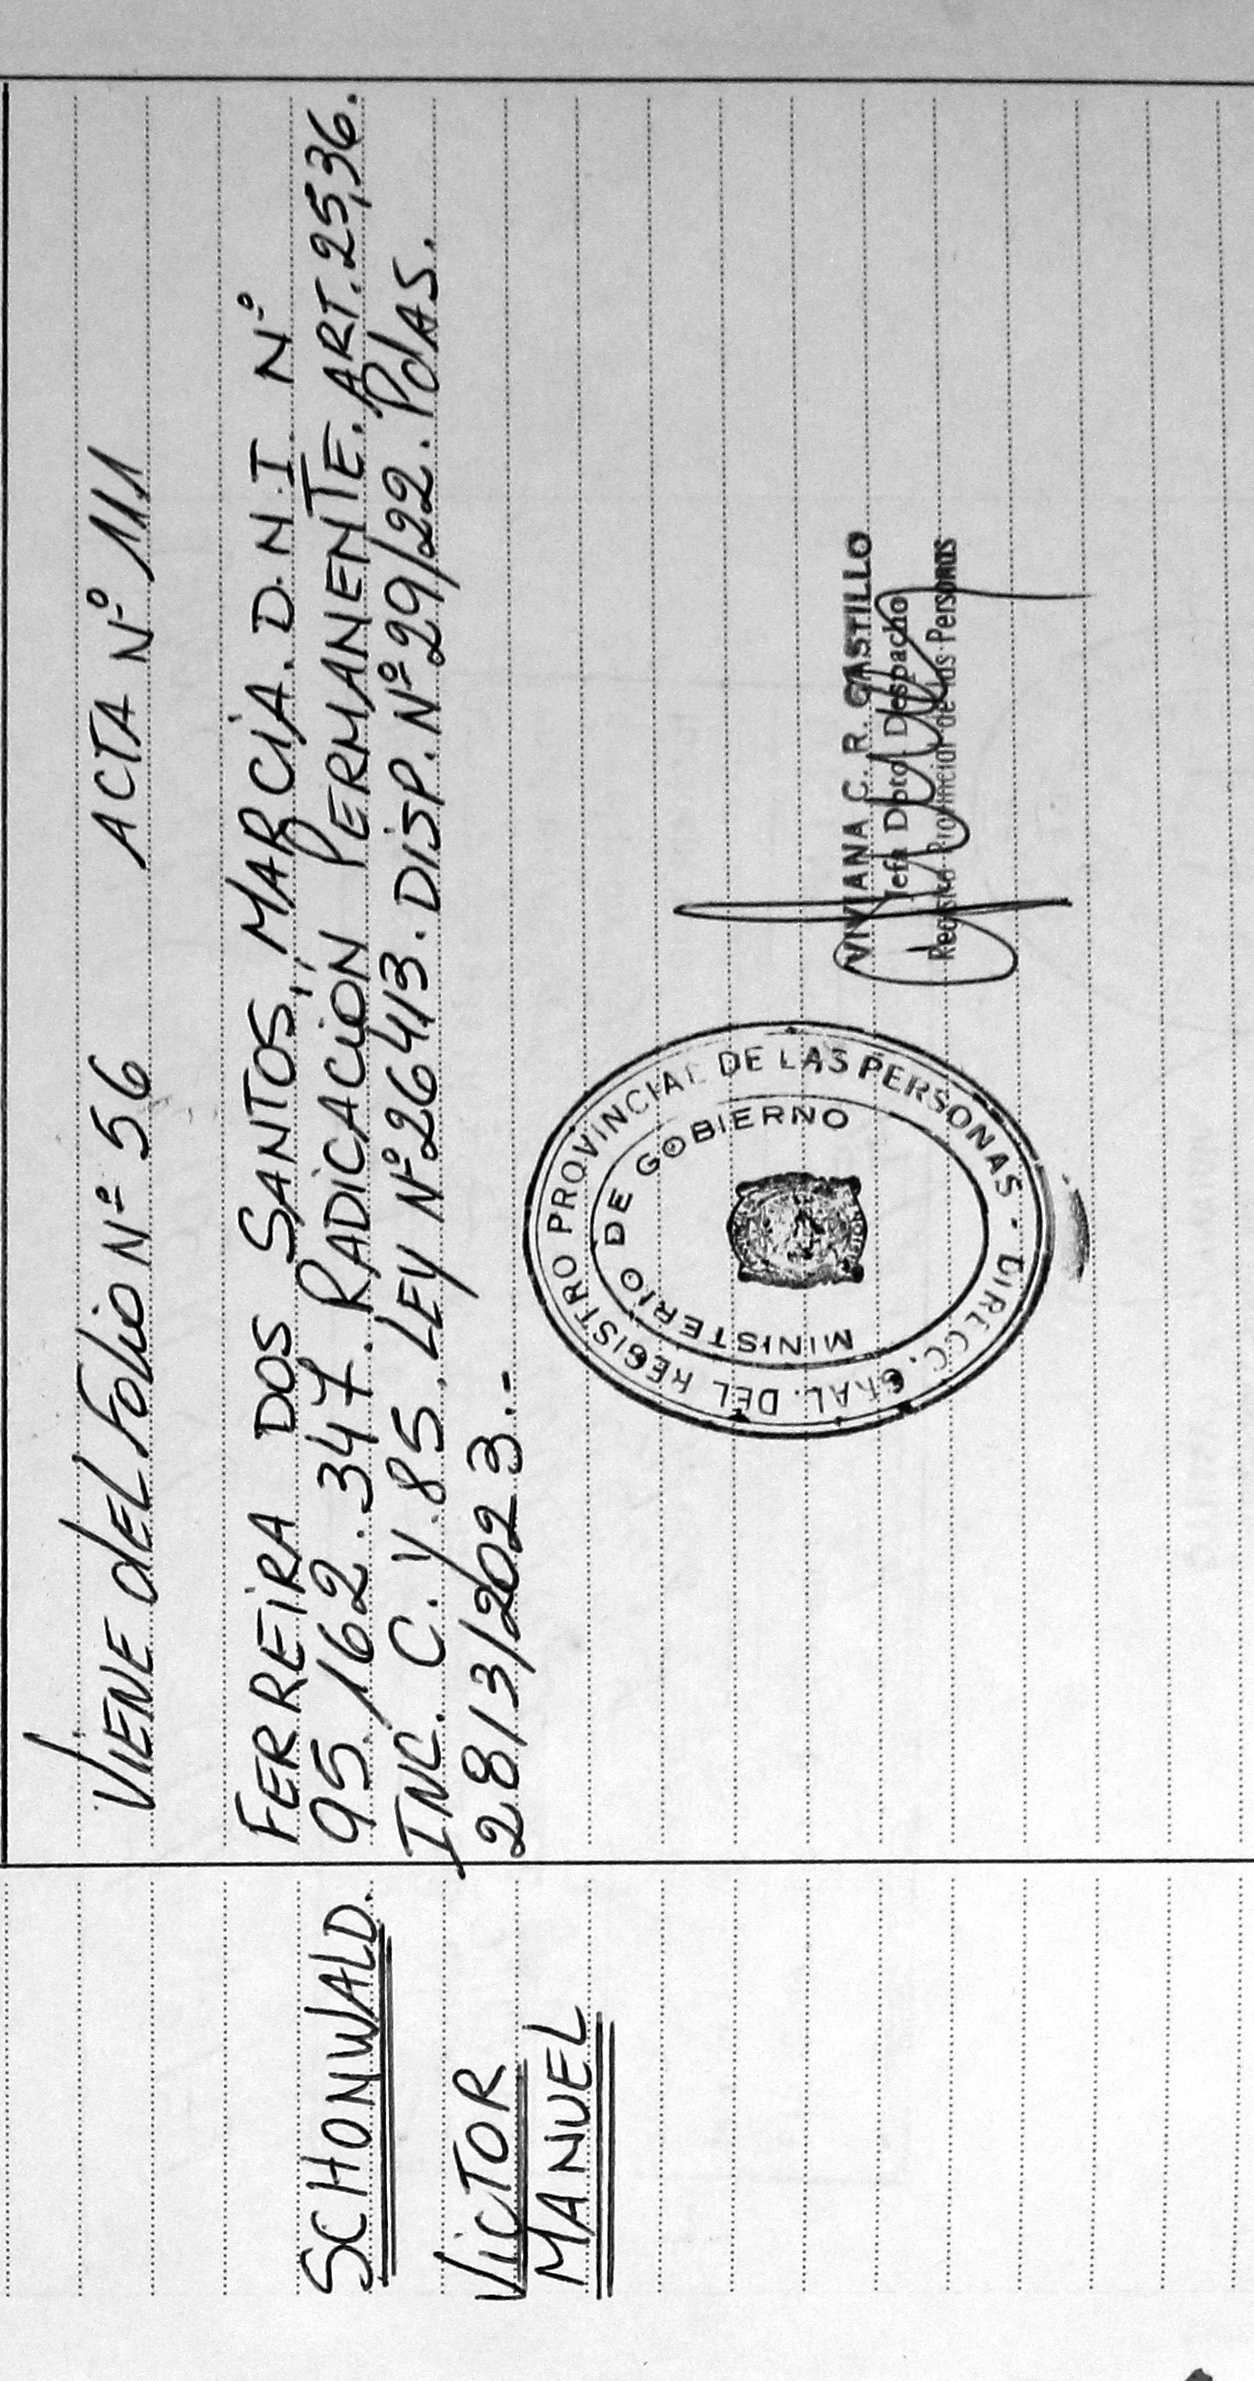 VIENE dEL FOLIO Nº 56 ACTA Nº 111
FERREIRA DOS SANTOS, MARCIA. D.N.I. Nº
95.162.347. RADICACIÓN PERMANENTE. ART. 25,36.
INC. C. Y. 85. LEY Nº 26413. DISP. Nº 29/22. PdAS.
28/3/2023.-
SCHONWALD.
VICTOR
MANUEL
REGISTRO PROVINCIAL DE LAS PERSONAS - DIRECC. GRAL. DEL
MINISTERIO DE GOBIERNO
VIVIANA C. R. CASTILLO
Jefa Dpto. Despacho
Registro Provincial de las Personas